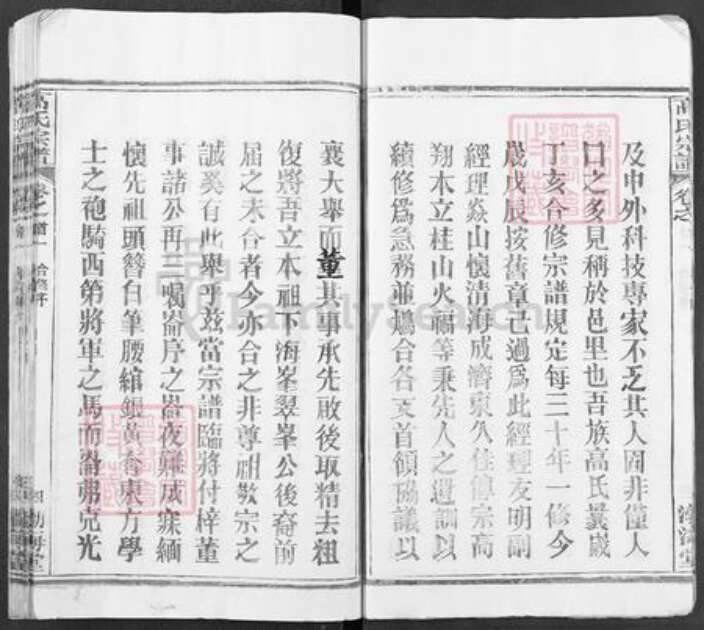 高氏宗譜
卷之
及中外科技專家不乏其人固非僅人
口之多見稱於邑里也吾族高氏冀歲
丁亥合修宗譜規定每三十年一修今
歲戊辰按舊章已過爲此經理友明副
經理焱山懷清海成濟東久佳傳宗高
翔本立桂山火福等秉先人之遺訓以
續修爲急務並鳩合各支首領協議以
襄大舉而董其事承先啟後取精去粗
復將吾立本祖下海峯翠峯公後裔前
屆之未合者今亦合之非尊祖敬宗之
誠奚有此舉乎茲當宗譜臨將付梓董
事諸公再三囑崙序之崙夜難成寐緬
懷先祖頭簪白筆腰綰銀黃奮東方學
士之袍騎西第將軍之馬而崙弗克光
高氏宗譜
卷之首
合修序
FamilySearch